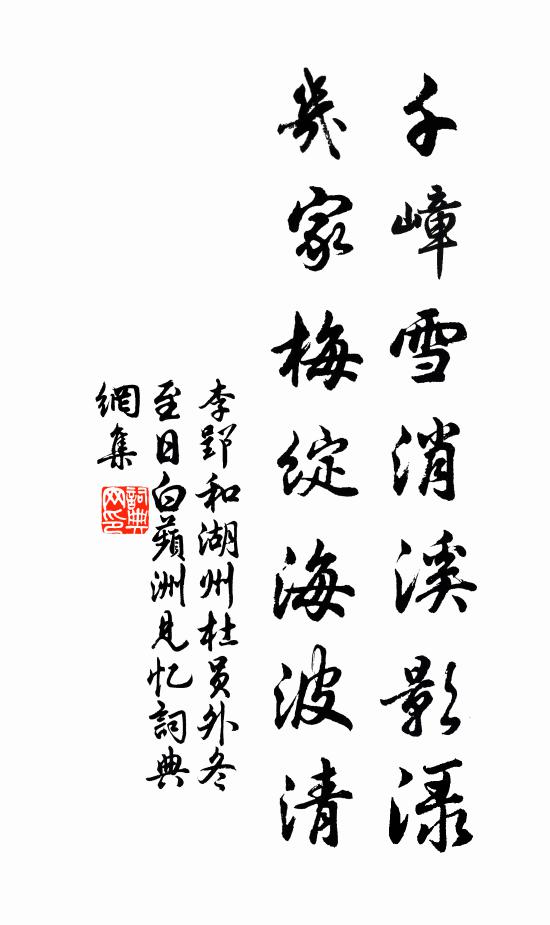 千嶂雪消溪影渌
幾家梅綻海波清
李郢和湖州杜員外冬
至日白蘋洲見忆詞典
網集
詞典網印